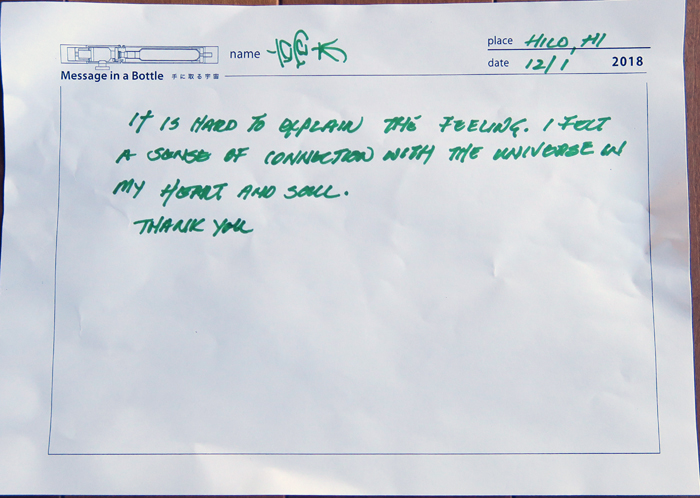 name
place HILO, HI
Message in a Bottle 手に取る宇宙
date 12/1 2018
IT IS HARD TO EXPLAIN THE FEELING. I FELT
A SENSE OF CONNECTION WITH THE UNIVERSE IN
MY HEART AND SOUL.
THANK YOU